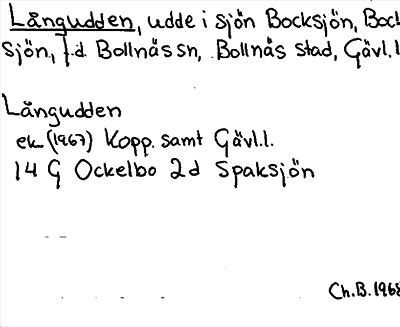 Långudden, udde i sjön Bocksjön, Bock
sjön, f.d Bollnäs sn, Bollnäs stad, Gävl.l
Långudden
ek (1967) Kopp. samt Gävl.l.
14 G Ockelbo 2d Spaksjön
Ch.B. 1968